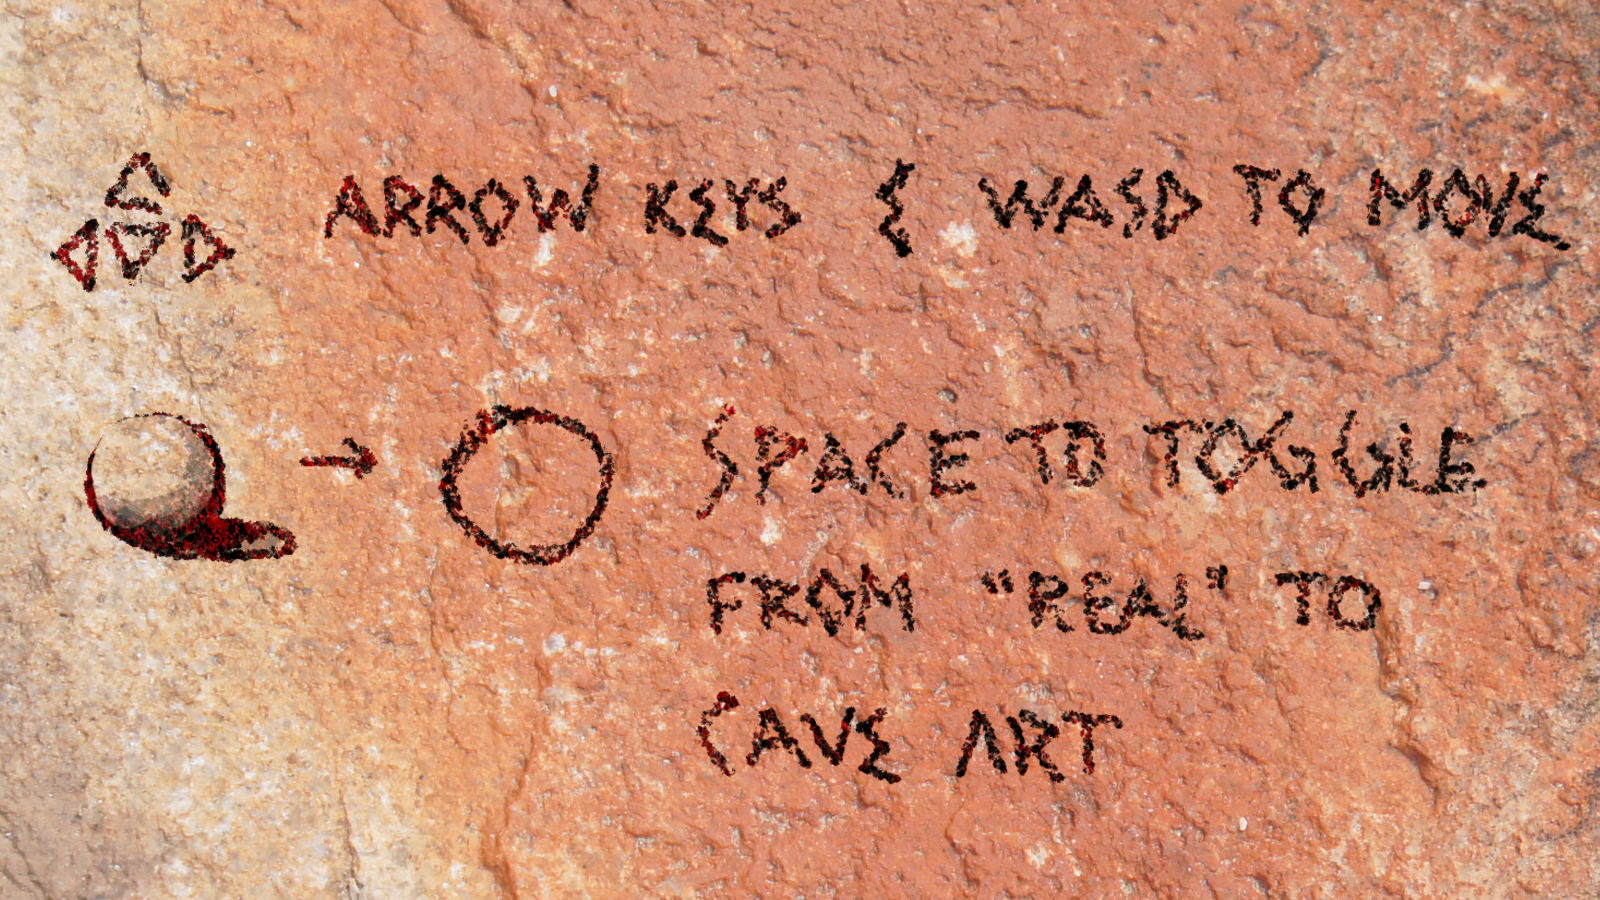 ARROW KEYS & WASD TO MOVE
SPACE TO TOGGLE
FROM "REAL" TO
CAVE ART